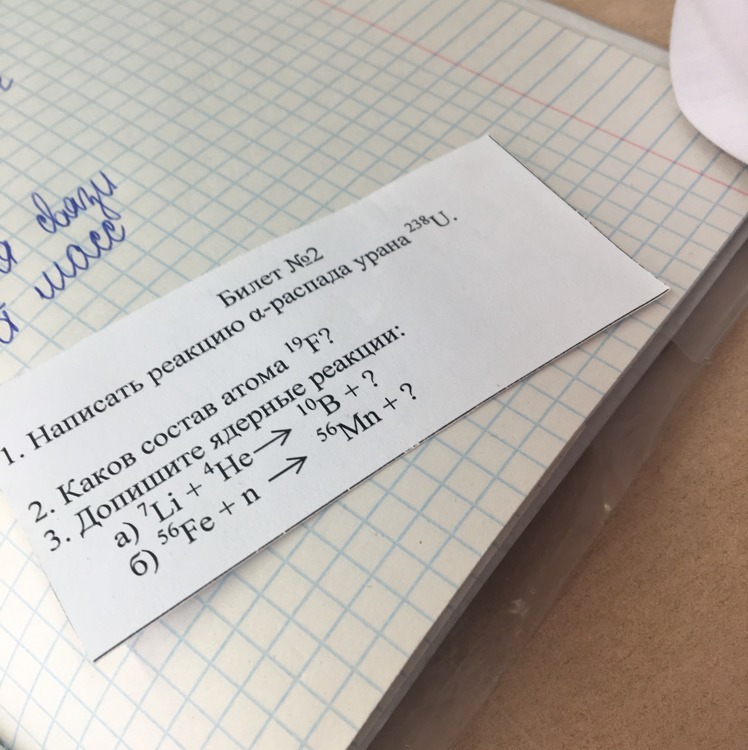 связи
масс
Билет №2
1. Написать реакцию α-распада урана ²³⁸U.
2. Каков состав атома ¹⁹F?
3. Допишите ядерные реакции:
а) ⁷Li + ⁴He → ¹⁰B + ?
б) ⁵⁶Fe + n → ⁵⁶Mn + ?